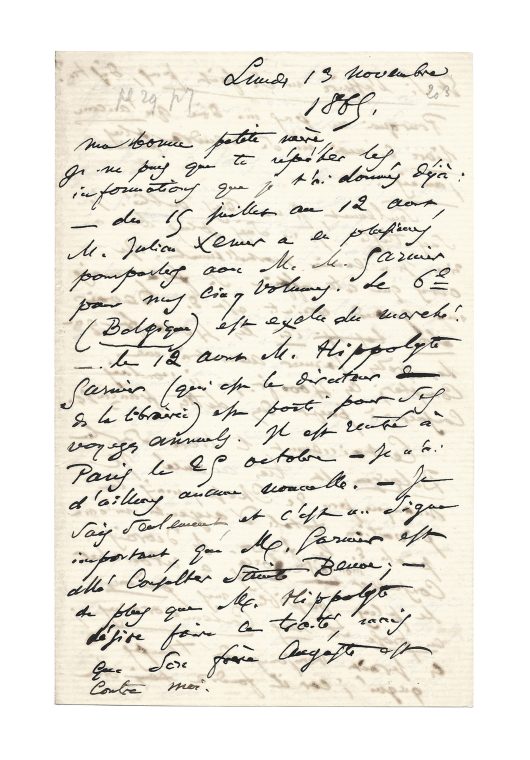 Lundi 13 novembre
1865.
203
pl 29 p7
ma bonne petite mère
Je ne puis que te répéter les
informations que je t'ai données déjà :
— du 15 juillet au 12 août
M. Julien Lemer a eu plusieurs
pourparlers avec M. M. Garnier
pour mes cinq volumes. Le 6e
(Belgique) est exclu du marché.
— le 12 août M. Hippolyte
Garnier (qui est le directeur de
de la librairie) est parti pour ses
voyages annuels. Il est rentré à
Paris le 25 octobre — Je n'ai
d'ailleurs aucune nouvelle. — Je
sais seulement, et c'est un signe
important, que M. Garnier est
allé consulter Sainte Beuve ; —
de plus que M. Hippolyte
désire faire ce traité, mais
que son frère Auguste est
contre moi.